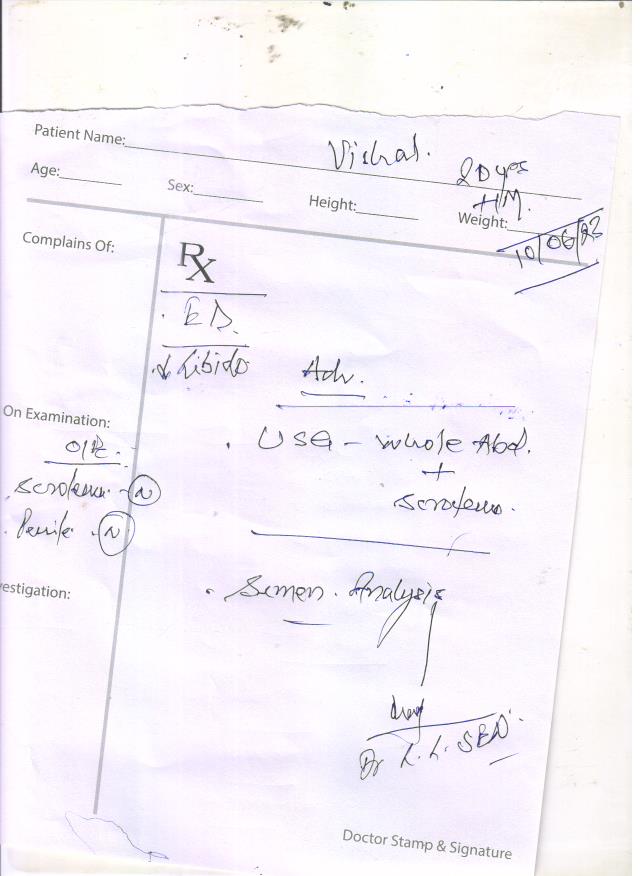 Patient Name: Vishal.
20 yrs
H/M.
Age: Sex: Height: Weight:
10/06/23
Complains Of:
Rx
. ED.
. ↓ Libido
Adv.
On Examination:
O/E.
. USG - Whole Abd.
+
Scrotum.
. Scrotum - N
. Penile . N
. Semen. Analysis
estigation:
Dr L. L. SEN.
Doctor Stamp & Signature